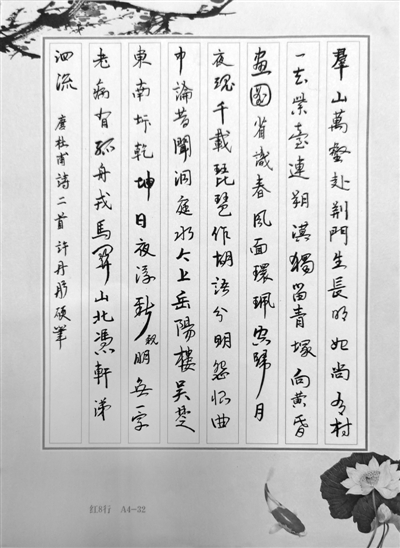 羣山萬壑赴荆門生長明妃尚有村
一去紫臺連朔漠獨留青塚向黄昏
畫圖省識春風面環珮空歸月
夜魂千載琵琶作胡語分明怨恨曲
中論昔聞洞庭水今上岳陽樓吴楚
東南坼乾坤日夜浮親朋無一字
老病有孤舟戎馬關山北憑軒涕
泗流 唐杜甫詩二首許丹彤硬筆
红8行 A4-32